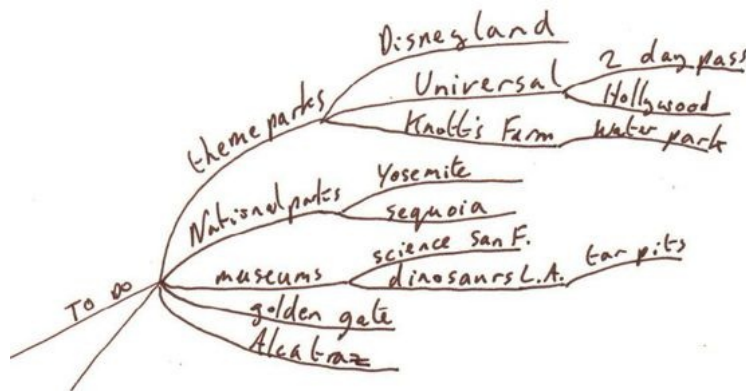 TO DO
theme parks
Disneyland
Universal
2 day pass
Hollywood
Knott's Farm
water park
National parks
Yosemite
sequoia
museums
science San F.
dinosaurs L.A.
tar pits
golden gate
Alcatraz